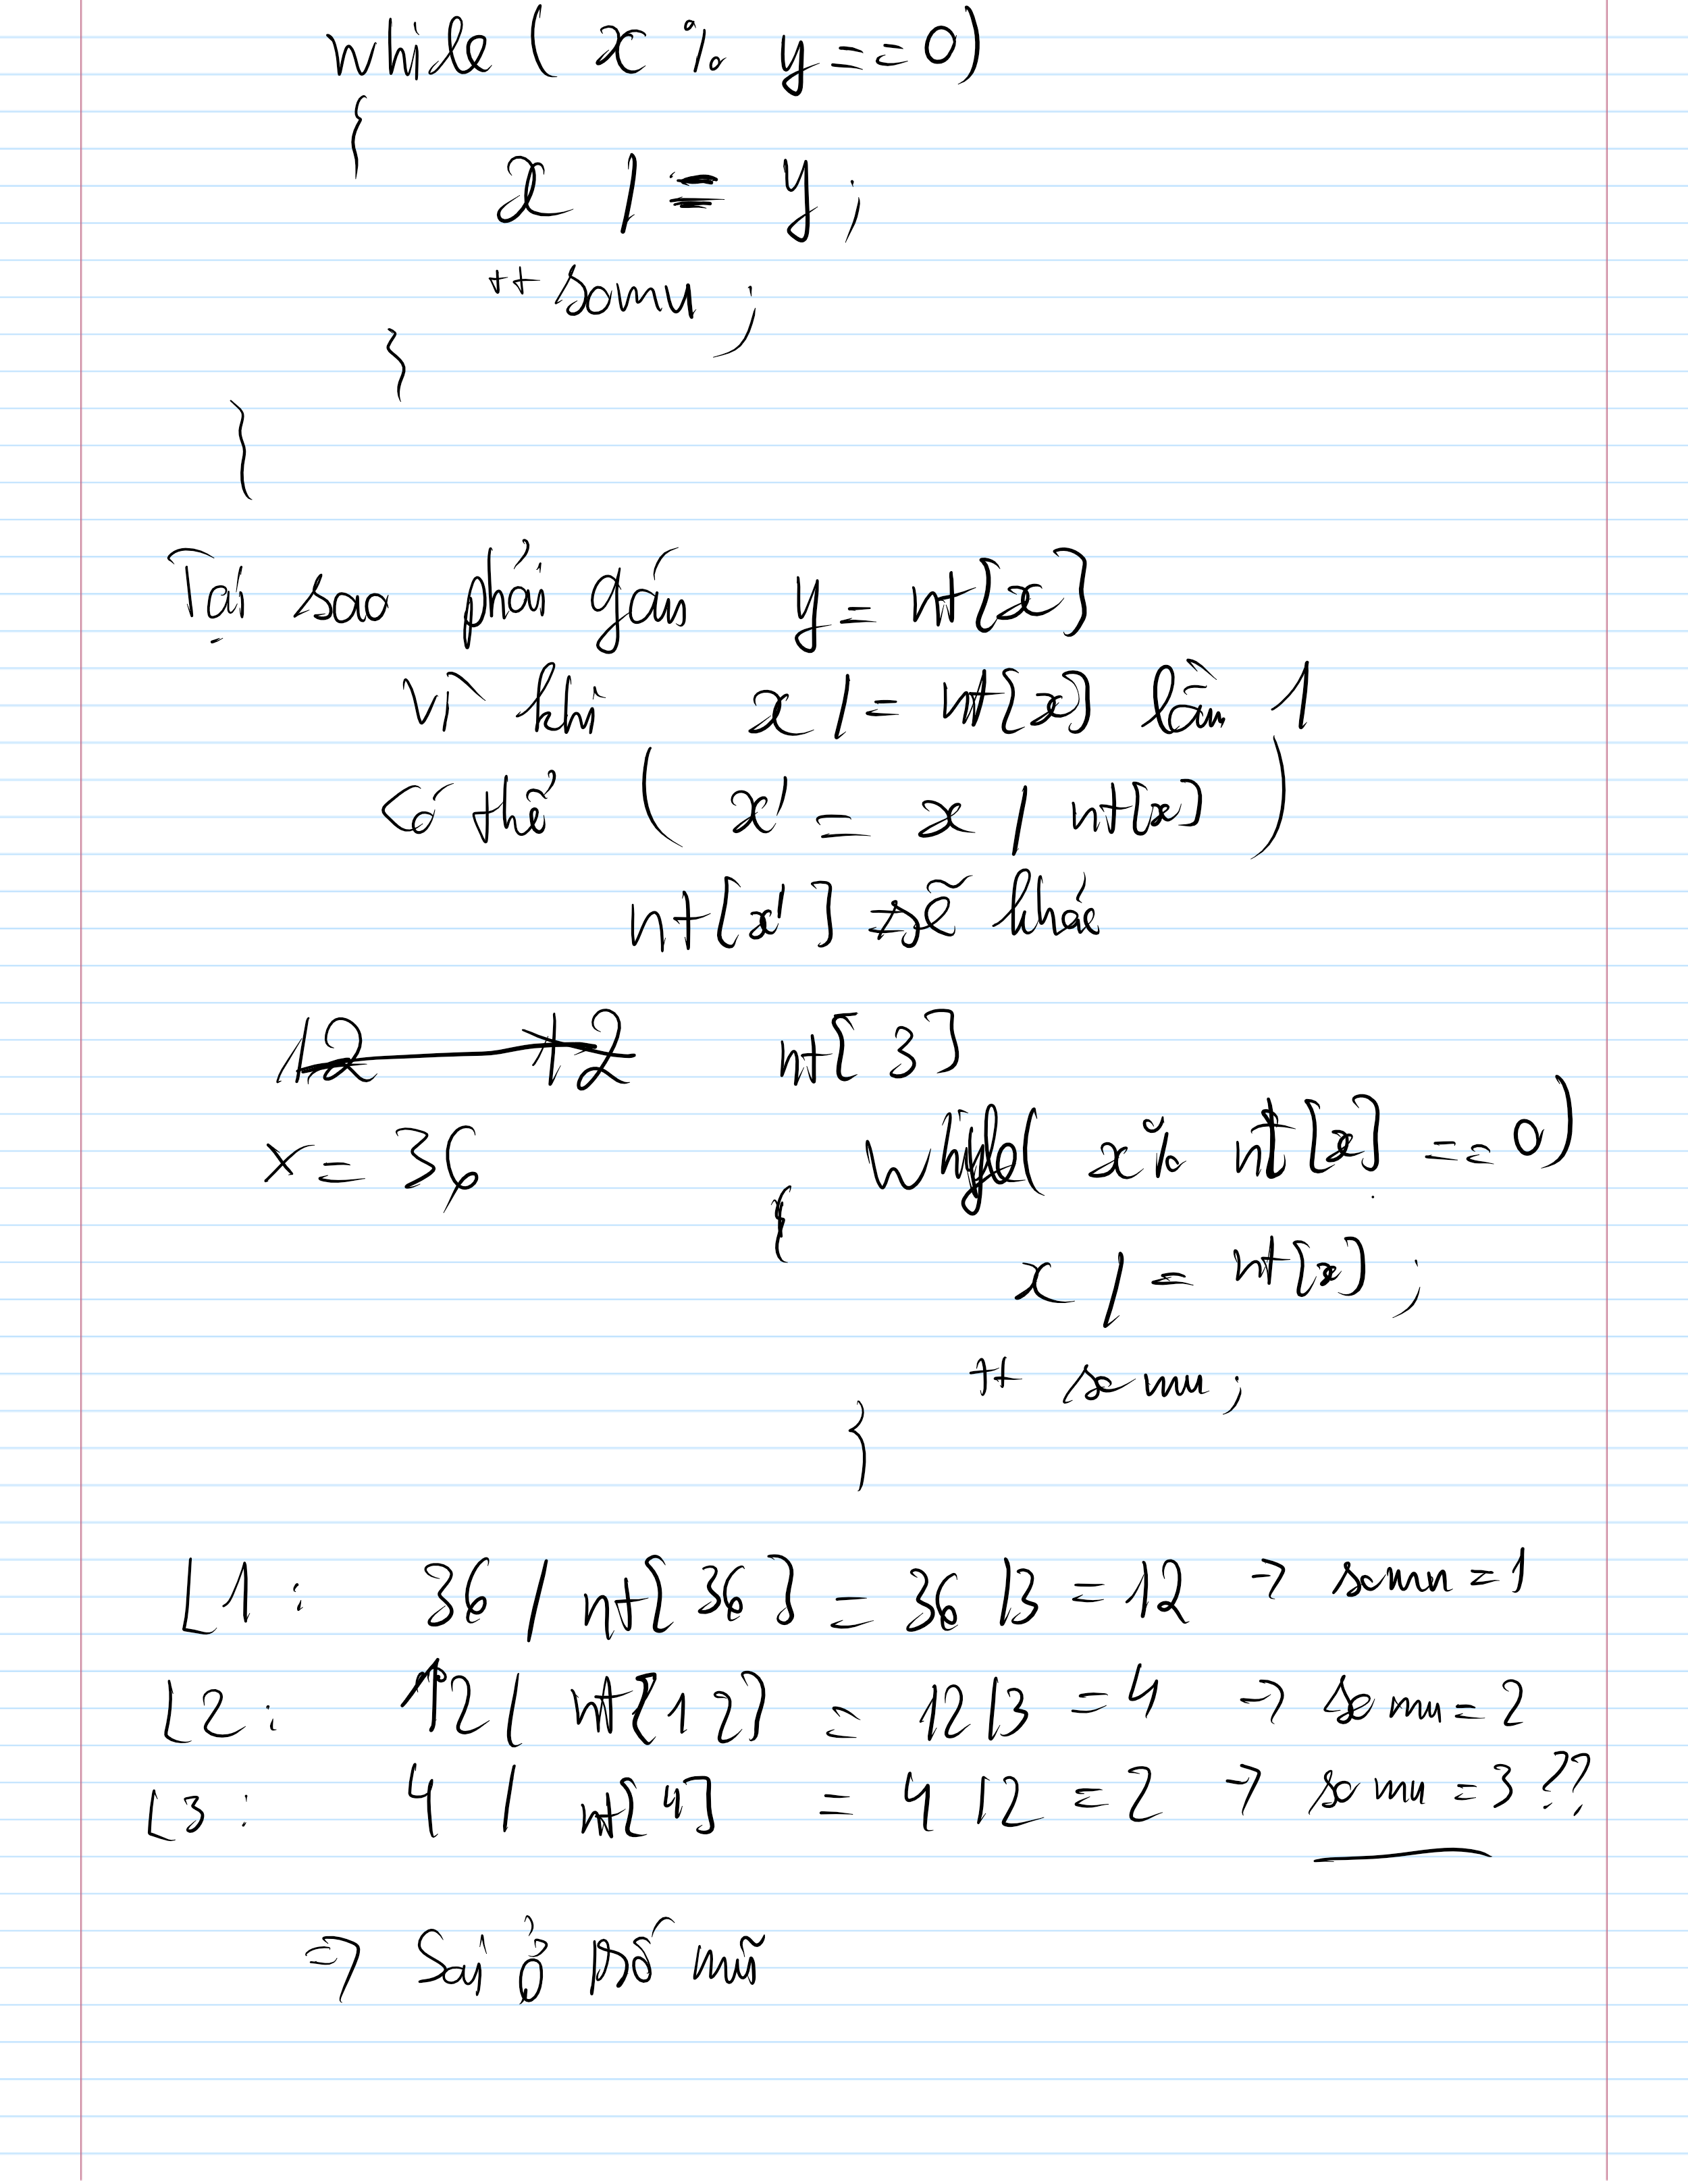 while ( x % y == 0)
{
x /= y;
++ somu ;
}
}
Tại sao phải gán y = nt[x]
Vì khi x /= nt[x] lần 1
Có thể ( x' = x / nt[x] )
nt[x'] sẽ khác
nt[3]
x = 36 while( x % nt[x] == 0)
{
x /= nt[x] ;
++ somu ;
}
L1 : 36 / nt[36] = 36 / 3 = 12 → somu = 1
L2 : 12 / nt[12] = 12 / 3 = 4 → somu = 2
L3 : 4 / nt[4] = 4 / 2 = 2 → somu = 3 ??
⇒ Sai ở số mũ